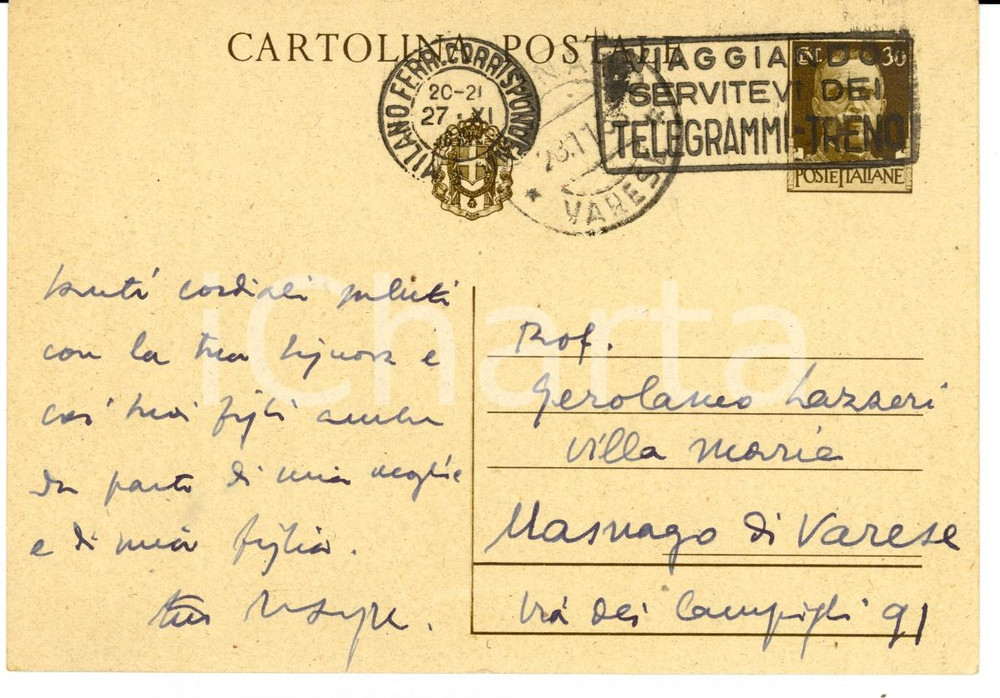 CARTOLINA POSTALE
MILANO FERR. CORRISPONDENZE
20-21
27 XI
VARESE
28.11
VIAGGIANDO
SERVITEVI DEI
TELEGRAMMI-TRENO
30
POSTE ITALIANE
iCharta
cordiali saluti
con la tua signora e
coi tuoi figli anche
da parte di mia moglie
e di mia figlia.
tuo
Prof.
Gerolamo Lazzeri
Villa Maria
Masnago di Varese
Via dei Campigli 91